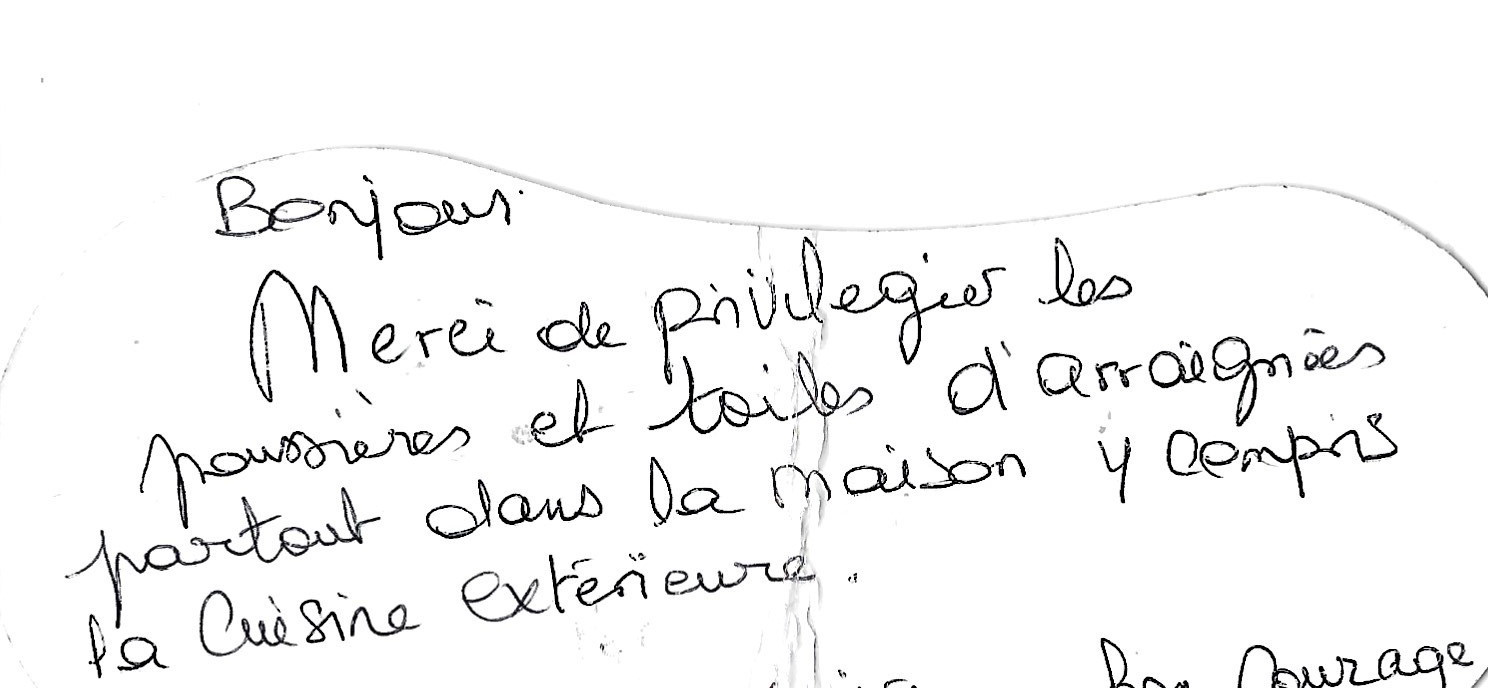 Bonjour
Merci de privilegier les
poussières et toiles d'arraignées
partout dans la maison y compris
la Cuisine extérieure.
Bon Courage